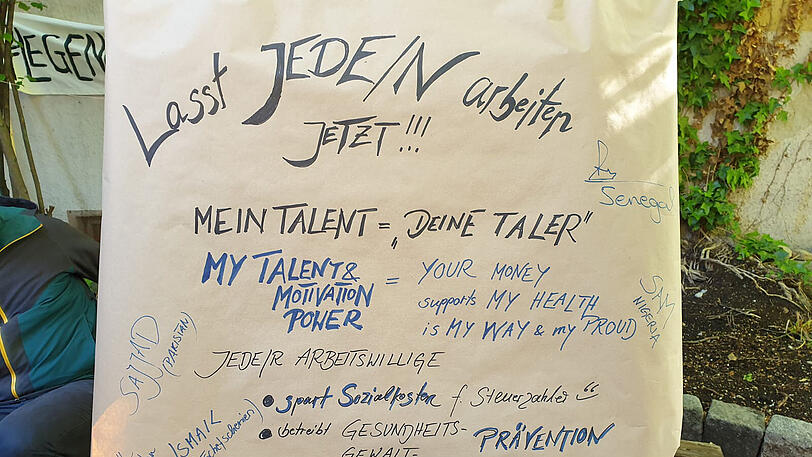 LEGEN
Lasst JEDE/N arbeiten
JETZT!!!
Senegal
MEIN TALENT = „DEINE TALER"
MY TALENT & MOTIVATION POWER = YOUR MONEY
supports MY HEALTH
is MY WAY & my PROUD
SAM
NIGERIA
SAJJAD
(PAKISTAN)
JEDE/R ARBEITSWILLIGE
• spart Sozialkosten f. Steuerzahler
• betreibt GESUNDHEITS-
PRÄVENTION
GEWALT-
ISMAIL